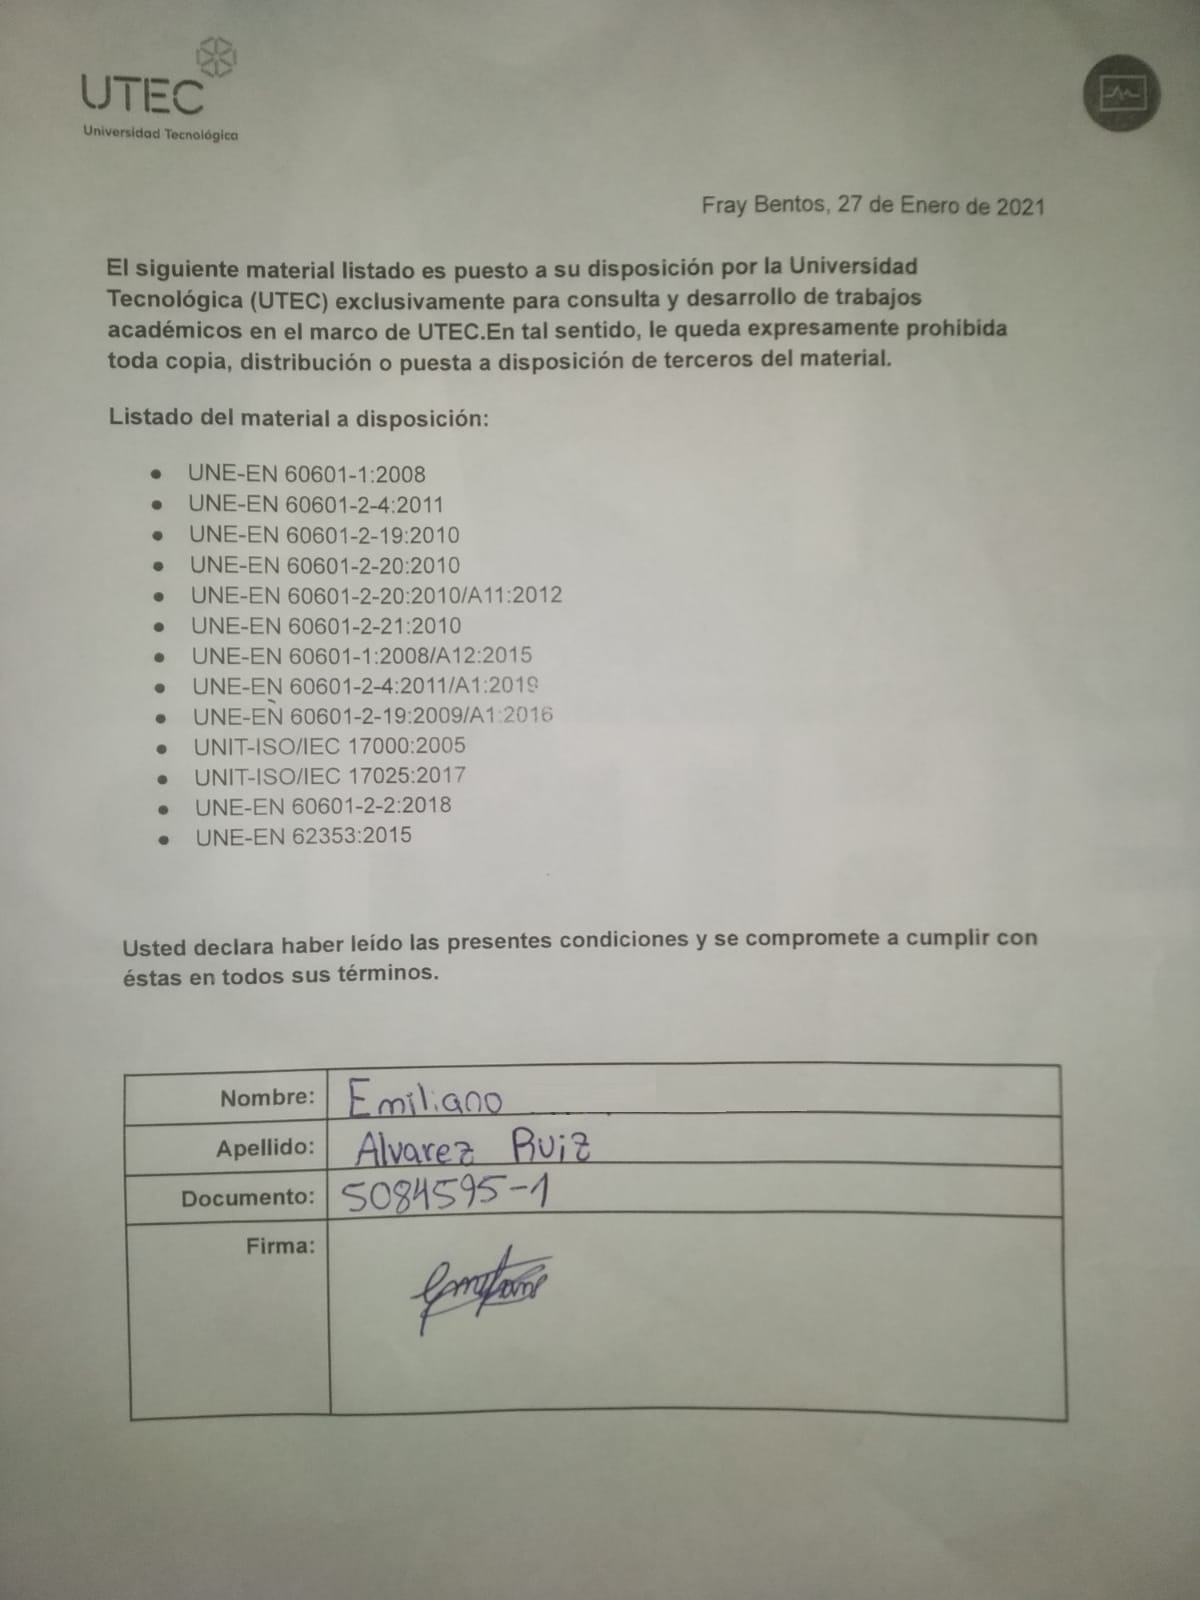 UTEC
Universidad Tecnológica
Fray Bentos, 27 de Enero de 2021
El siguiente material listado es puesto a su disposición por la Universidad
Tecnológica (UTEC) exclusivamente para consulta y desarrollo de trabajos
académicos en el marco de UTEC.En tal sentido, le queda expresamente prohibida
toda copia, distribución o puesta a disposición de terceros del material.
Listado del material a disposición:
● UNE-EN 60601-1:2008
● UNE-EN 60601-2-4:2011
● UNE-EN 60601-2-19:2010
● UNE-EN 60601-2-20:2010
● UNE-EN 60601-2-20:2010/A11:2012
● UNE-EN 60601-2-21:2010
● UNE-EN 60601-1:2008/A12:2015
● UNE-EN 60601-2-4:2011/A1:2019
● UNE-EN 60601-2-19:2009/A1:2016
● UNIT-ISO/IEC 17000:2005
● UNIT-ISO/IEC 17025:2017
● UNE-EN 60601-2-2:2018
● UNE-EN 62353:2015
Usted declara haber leído las presentes condiciones y se compromete a cumplir con
éstas en todos sus términos.
Nombre: Emiliano
Apellido: Alvarez Ruiz
Documento: 5084595-1
Firma: